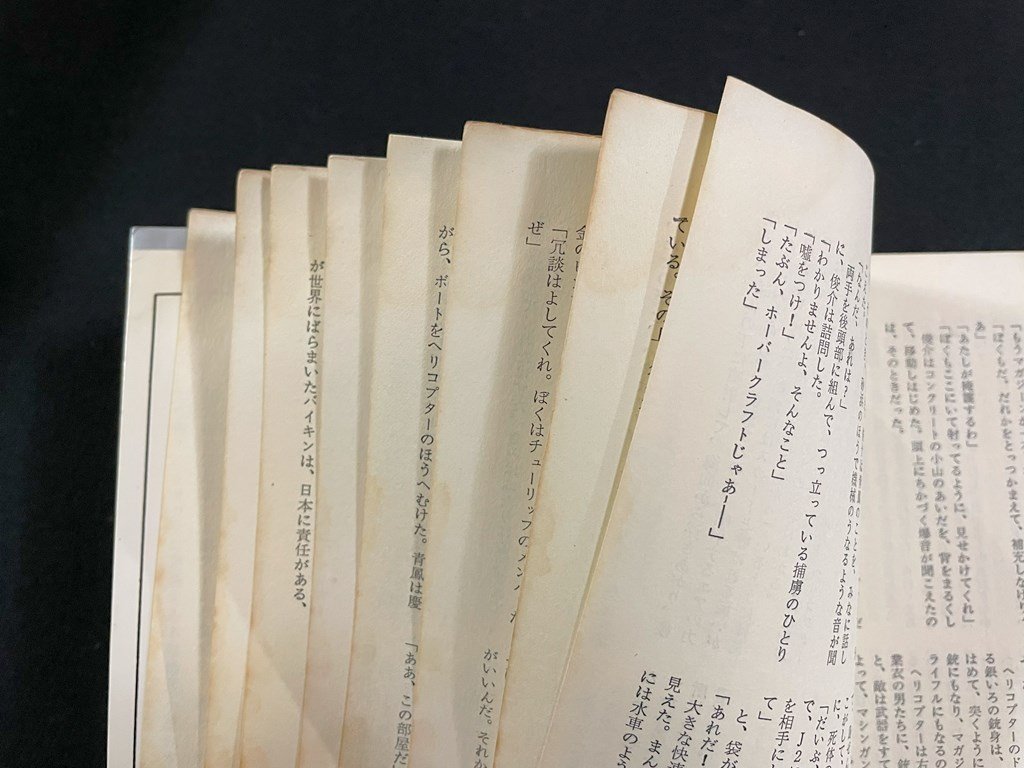 「もうマガジンが
「ぼくもだ。だれかをとっつかまえて、補充しなけり
あ」
「あたしが掩護するわ」
「ぼくもここにいて射ってるように、見せかけてくれ」
俊介はコンクリートの小山のあいだを、背をまるくし
て、移動しはじめた。頭上にちかづく爆音が聞こえたの
は、そのときだった。
ヘリコプターのド
る銀いろの銃身は、
はめて、突くように
銃にもなり、マガジ
ライフルにもなるの
ヘリコプターは右
業衣の男たちに、銃
と、敵は武器をすて
よって、マシンガン
「なんだ、あれは？」
両手を後頭部に組んで、つっ立っている捕虜のひとり
に、俊介は詰問した。
「わかりませんよ、そんなこと」
「嘘をつけ！」
「たぶん、ホーバークラフトじゃあ——」
「しまった」
に、死体の
「だいぶ、
で、J2
を相手に
て」
と、袋が
「あれだ！
大きな快速
見えた。まん
には水車のよう
ている。その
「冗談はよしてくれ。ぼくはチューリップの
ぜ」
がいいんだ。それか
がら、ボートをヘリコプターのほうへむけた。青鳳は慶
「ああ、この部屋だ
が世界にばらまいたバイキンは、日本に責任がある、